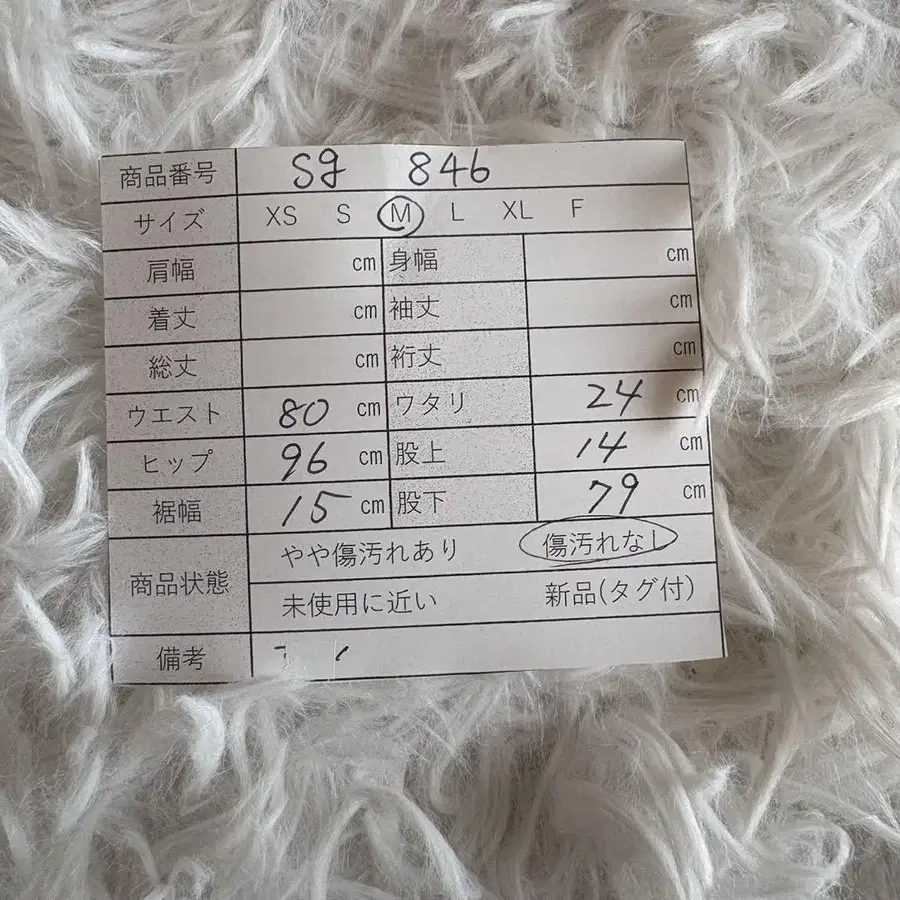 商品番号 Sg 846
サイズ XS S M L XL F
肩幅 cm 身幅 cm
着丈 cm 袖丈 cm
総丈 cm 裄丈 cm
ウエスト 80 cm ワタリ 24 cm
ヒップ 96 cm 股上 14 cm
裾幅 15 cm 股下 79 cm
商品状態 やや傷汚れあり 傷汚れなし
未使用に近い 新品(タグ付)
備考